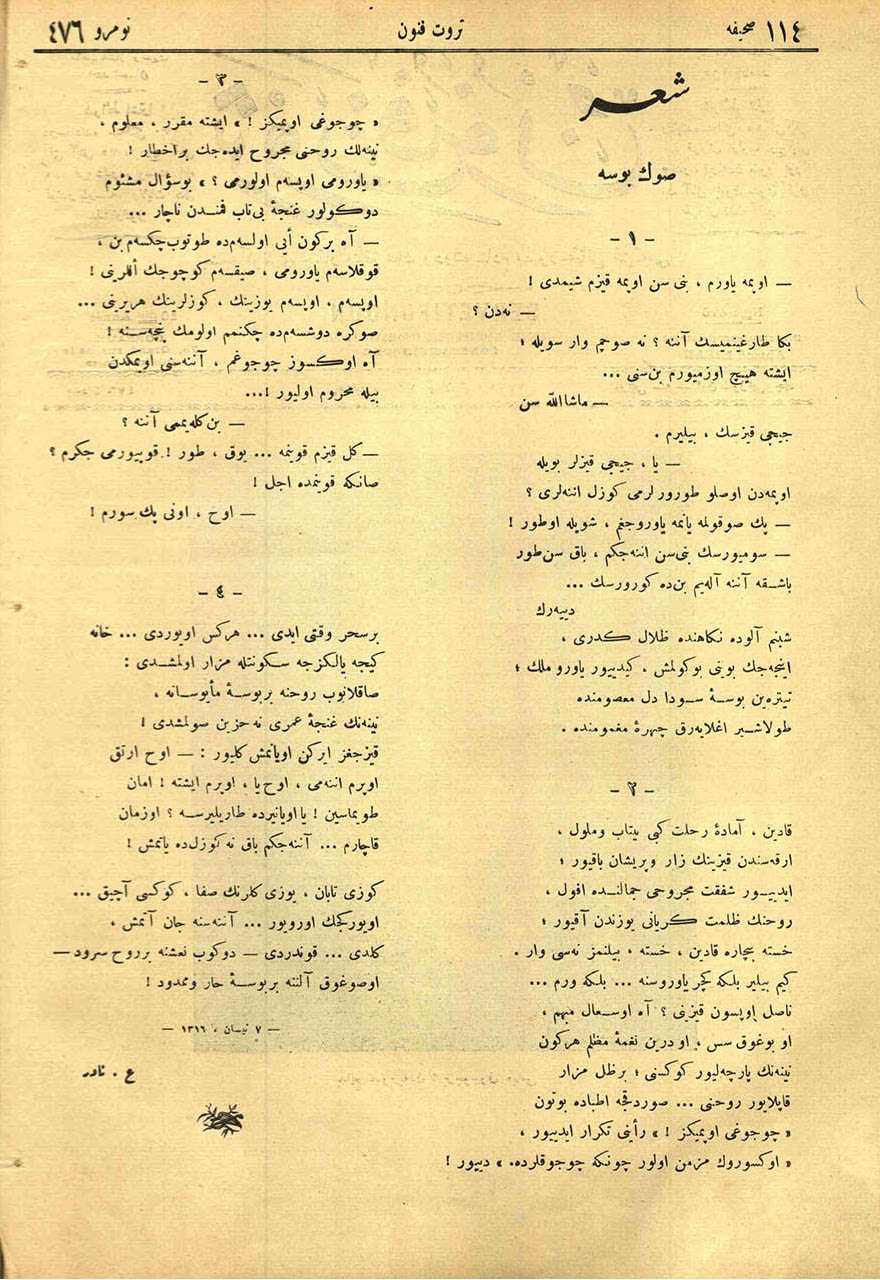 ١١٤ صحيفه
ثروت فنون
نومرو ٤٧٦
شعر
صوڭ بوسه
- ١ -
— اوپمه ياورم ، بنى سن اوپمه قيزم شيمدى !
— نه‌دن ؟
بكا طارغينميسك آننه ؟ نه صوچم وار سويله ؛
ايشته هيچ اوزميورم بن سنى ...
— ماشاالله سن
جيجى قيزسك ، بيليرم .
— يا ، جيجى قيزلر بويله
اوپمه‌دن اوصلو طورورلرمى كوزل اننه‌لرى ؟
— پك صوقولمه يانمه ياوروجغم ، شويله اوطور !
— سوميورسك بنى سن اننه‌جكم ، باق سن طور
باشقه آننه آله‌يم بن‌ده كورورسك ...
دييه‌رك
شبنم آلوده نكاهنده ظلال كدرى ،
اينجه‌جك بوينى بوكولمش ، كيدييور ياورو ملك ؛
تيتره‌ين بوسهٔ سودا دل معصومنده
طولاشير اغلايه‌رق چهرهٔ مغمومنده .
- ٢ -
قادين ، آمادهٔ رحلت كبى بيتاب وملول ،
ارقه‌سندن قيزينك زار وپريشان باقيور ؛
ايدييور شفقت مجروحى جمالنده افول ،
روحنك ظلمت كريانى يوزندن آقيور ؛
خسته بيچاره قادين ، خسته ، بيلنمز نه‌سى وار .
كيم بيلير بلكه كچر ياوروسنه ... بلكه ورم ...
ناصل اوپسون قيزينى ؟ آه اوسعال مبهم ،
او بوغوق سس ، او درين نغمهٔ مظلم هركون
نينه‌نك پارچه‌ليور كوكسنى ؛ بر ظل مزار
قاپلايور روحنى ... صوردقجه اطباده بوتون
« چوجوغى اوپميكز ! » رأينى تكرار ايدييور ،
« اوكسوروك مزمن اولور چونكه چوجوقلرده . » دييور !
- ٣ -
« چوجوغى اوپميكز ! » ايشته مقرر ، معلوم ،
نينه‌لك روحنى مجروح ايده‌جك براخطار !
« ياورومى اوپسه‌م اولورمى ؟ » بوسؤال مشئوم
دوكولور غنجهٔ بى‌تاب فمندن ناچار ...
— آه بركون أيى اولسه‌م‌ده طوتوب چكسه‌م بن ،
قوقلاسه‌م ياورومى ، صيقسه‌م كوچوجك أللرينى !
اوپسه‌م ، اوپسه‌م يوزينك ، كوزلرينك هريرينى ...
صوكره دوشسه‌م‌ده چكنمم اولومك پنچه‌سنه !
آه اوكسوز چوجوغم ، آننه‌سنى اوپمكدن
بيله محروم اوليور !...
— بن كله‌يممى آننه ؟
— كل قيزم قوينمه ... يوق ، طور ! قوپيورمى جكرم ؟
صانكه قوينمده اجل !
— اوح ، اونى پك سورم !
- ٤ -
برسحر وقتى ايدى ... هركس اويوردى ... خانه
كيجه يالكزجه سكونتله مزار اولمشدى :
صاقلانوب روحنه بربوسهٔ مأيوسانه ،
نينه‌نك غنجهٔ عمرى نه حزين صولمشدى !
قيزجغز ايركن اويانمش كليور : — اوح ارتق
اوپرم اننه‌مى ، اوح يا ، اوپرم ايشته ! امان
طويماسين ! يا اويانيرده طاريليرسه ؟ اوزمان
قاچارم ... آننه‌جكم باق نه كوزل‌ده ياتمش !
كوزى تابان ، يوزى كلرنك صفا ، كوكسى آچيق ...
اويوركجك اورويور ... آننه‌سنه جان آتمش ،
كلدى ... قوندردى — دوكوب نعشنه برروح سرود —
اوصوغوق آلننه بربوسهٔ حار وممدود !
— ٧ نيسان ، ١٣١٦ —
ع . نادر